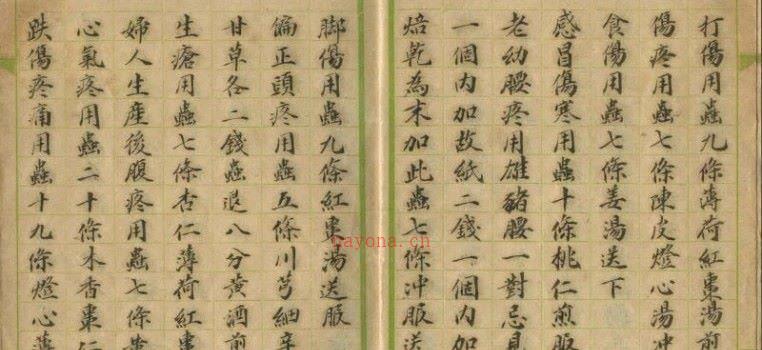 打傷用蟲九條薄荷紅棗湯前
傷疼用蟲七條陳皮燈心湯冲
食傷用蟲七條姜湯送下
感冒傷寒用蟲十條桃仁煎服
老幼腰疼用雄豬腰一對忌見
一個內加故紙二錢一個內加
焙乾為末加此蟲七條冲服送
脚傷用蟲九條紅棗湯送服
偏正頭疼用蟲五條川芎細辛
甘草各二錢蟲退八分黄酒煎
生瘡用蟲七條杏仁薄荷紅棗
婦人生產後腹疼用蟲七條
心氣疼用蟲二十條木香棗仁
跌傷疼痛用蟲十九條燈心薄
nayona.cn